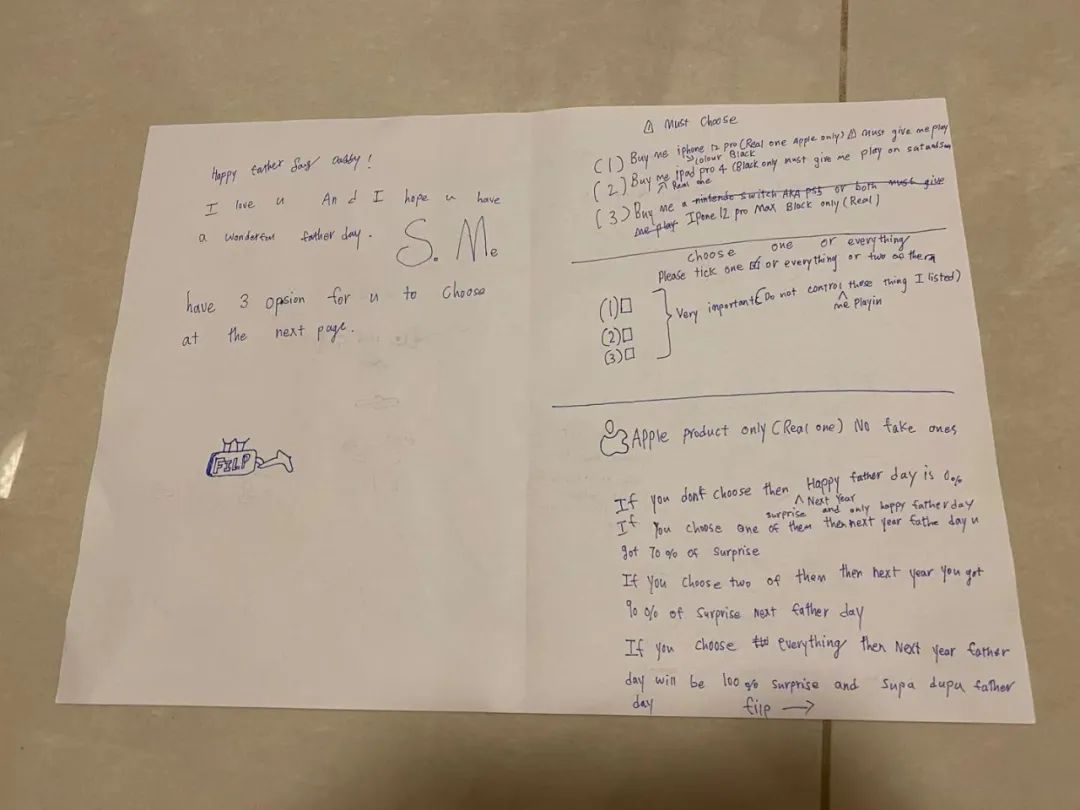 Happy father day daddy!
I love u And I hope u have
a wonderful father day.
S. Me
have 3 opsion for u to choose
at the next page.
FILP
⚠ Must Choose
(1) Buy me iphone 12 pro (Real one Apple only) ⚠ Must give me play
colour Black
(2) Buy me ipad pro 4 (Black only must give me play on satandsun
Real one
(3) Buy me a nintendo switch AKA PS5 or both must give
me play Ipone 12 pro Max Black only (Real)
choose one or everything
Please tick one ☑ or everything or two of them
(1)☐
(2)☐
(3)☐
Very important (Do not control these thing I listed)
me playin
Apple product only (Real one) No fake ones
If you don't choose then Happy father day is 0%
Next Year
surprise and only happy father day
If you choose one of them then next year fathe day u
got 70 % of surprise
If you choose two of them then next year you got
90 % of surprise next father day
If you choose everything then Next year father
day will be 100 % surprise and supa dupa father
day
filp →